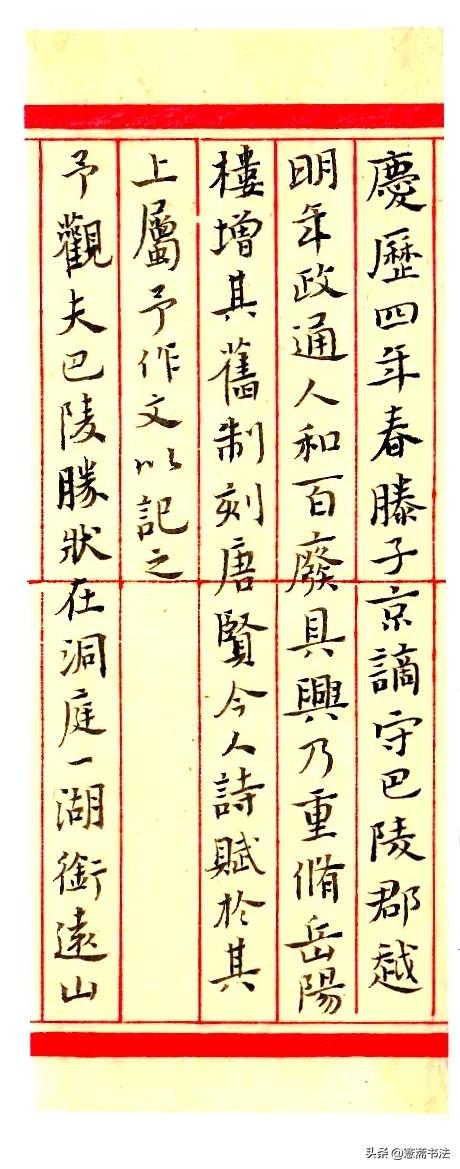 慶歷四年春滕子京謫守巴陵郡越
明年政通人和百廢具興乃重脩岳陽
樓增其舊制刻唐賢今人詩賦於其
上屬予作文以記之
予觀夫巴陵勝狀在洞庭一湖銜遠山
头条@憲滿书法